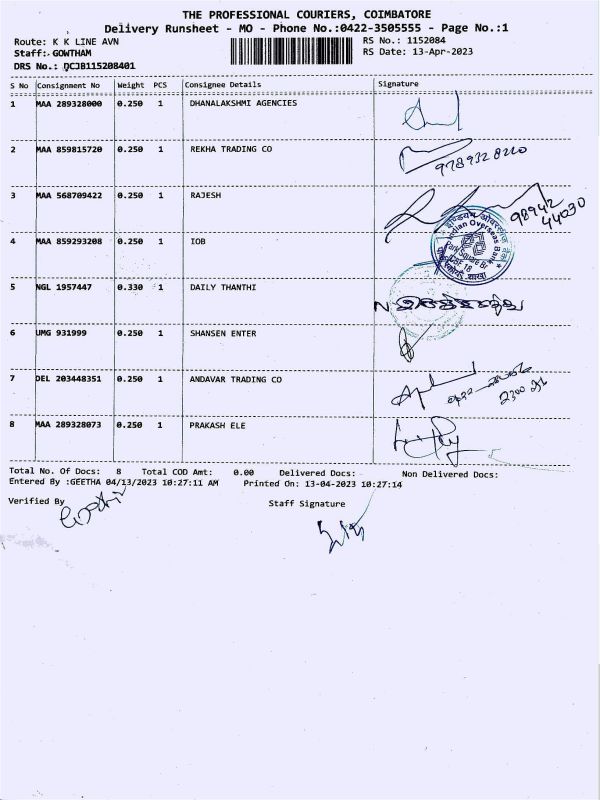 THE PROFESSIONAL COURIERS, COIMBATORE
Delivery Runsheet - MO - Phone No.:0422-3505555 - Page No.:1
Route: K K LINE AVN RS No.: 1152084
Staff: GOWTHAM RS Date: 13-Apr-2023
DRS No.: DCJB115208401
S No Consignment No Weight PCS Consignee Details Signature
1 MAA 289328000 0.250 1 DHANALAKSHMI AGENCIES
2 MAA 859815720 0.250 1 REKHA TRADING CO
9789328220
3 MAA 568709422 0.250 1 RAJESH
98942
44030
4 MAA 859293208 0.250 1 IOB
Indian Overseas Bank
5 NGL 1957447 0.330 1 DAILY THANTHI
6 UMG 931999 0.250 1 SHANSEN ENTER
7 DEL 203448351 0.250 1 ANDAVAR TRADING CO
8 MAA 289328073 0.250 1 PRAKASH ELE
Total No. Of Docs: 8 Total COD Amt: 0.00 Delivered Docs: Non Delivered Docs:
Entered By :GEETHA 04/13/2023 10:27:11 AM Printed On: 13-04-2023 10:27:14
Verified By Staff Signature